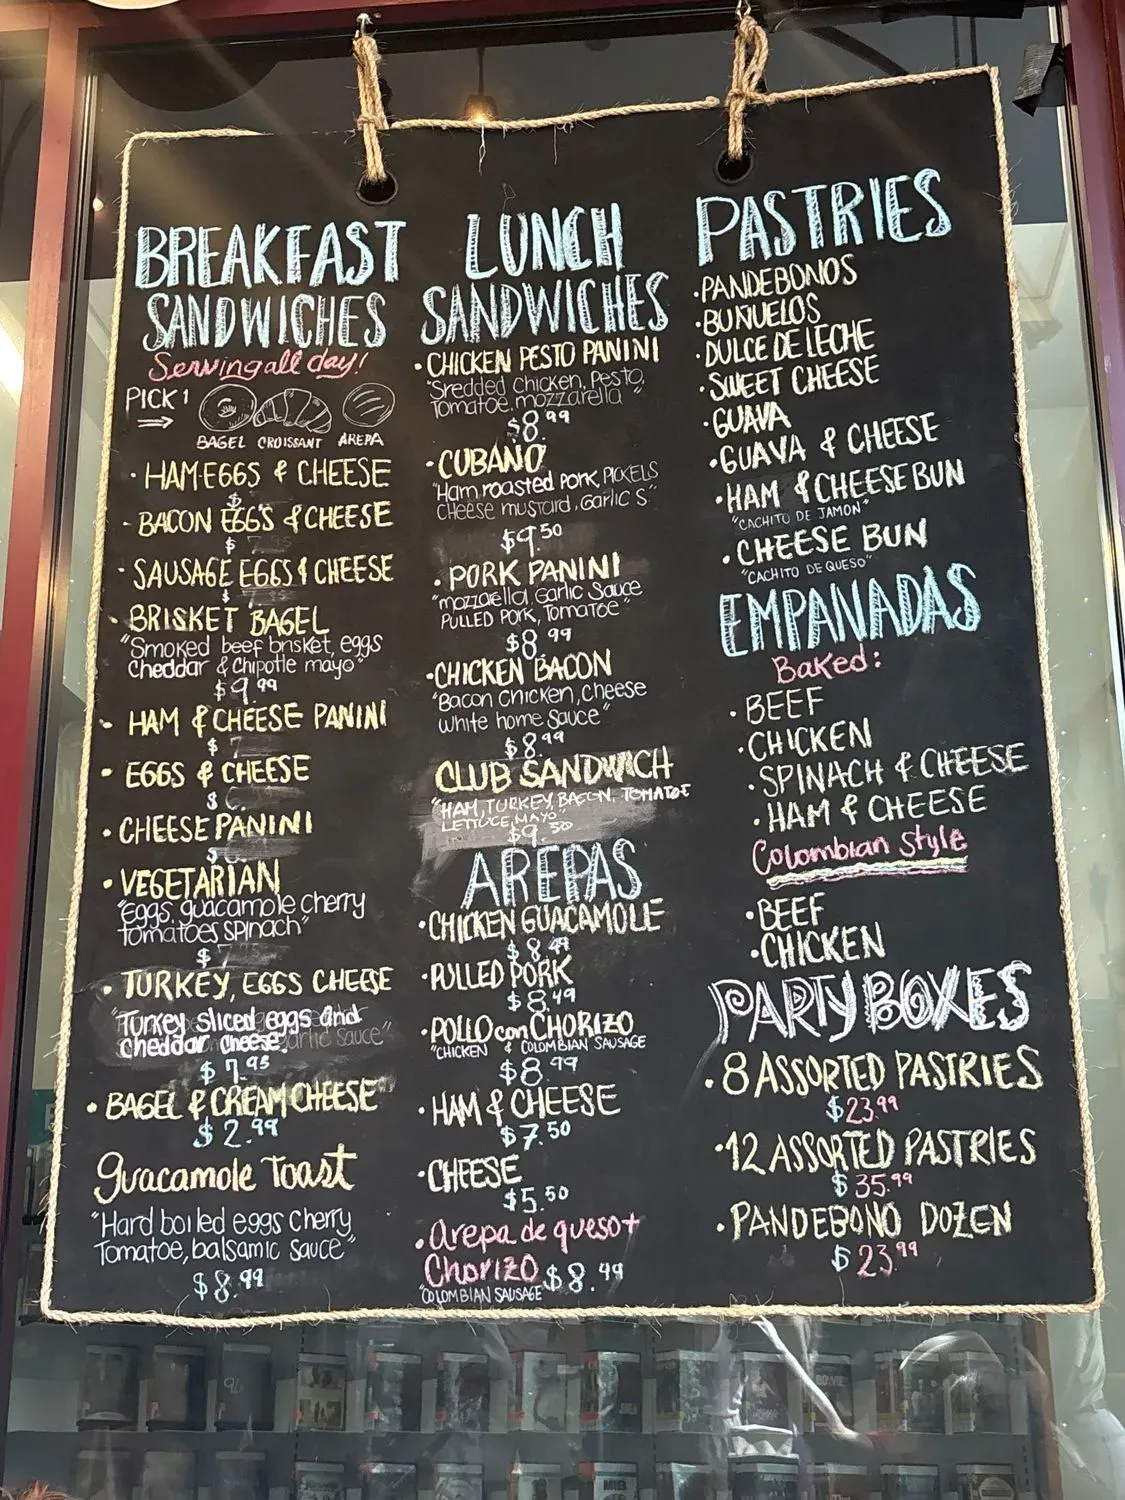 BREAKFAST
SANDWICHES
Serving all day!
PICK 1
BAGEL CROISSANT AREPA
· HAM·EGGS & CHEESE
$
· BACON EGGS & CHEESE
$ 7.95
· SAUSAGE EGGS & CHEESE
$
· BRISKET BAGEL
"Smoked beef brisket, eggs
Cheddar & Chipotle mayo"
$9.99
· HAM & CHEESE PANINI
$ 7
· EGGS & CHEESE
$ 6.
· CHEESE PANINI
$
· VEGETARIAN
"Eggs, guacamole cherry
tomatoes spinach"
$ 7.75
· TURKEY, EGGS CHEESE
"Turkey sliced eggs and
Cheddar Cheese. garlic sauce"
$ 7.95
· BAGEL & CREAM CHEESE
$ 2.99
Guacamole Toast
"Hard boiled eggs Cherry
Tomatoe, balsamic Sauce"
$8.99
LUNCH
SANDWICHES
· CHICKEN PESTO PANINI
"Sredded Chicken, Pesto,
Tomatoe, mozzarella "
$8.99
· CUBANO
"Ham, roasted Pork, PICKELS
CHeese mustard, Garlic S"
$9.50
· PORK PANINI
"mozzarella, Garlic Sauce
PULLED PORK, Tomatoe"
$8.99
· CHICKEN BACON
"Bacon Chicken, Cheese
white home Sauce"
$8.99
CLUB SANDWICH
"HAM, TURKEY, BACON, TOMATOE
LETTUCE, MAYO"
$9.50
AREPAS
· CHICKEN GUACAMOLE
$8.49
· PULLED PORK
$8.49
· POLLO con CHORIZO
"CHICKEN & COLOMBIAN SAUSAGE
$8.99
· HAM & CHEESE
$7.50
· CHEESE
$5.50
· Arepa de queso +
Chorizo $8.49
"COLOMBIAN SAUSAGE"
PASTRIES
· PANDEBONOS
· BUNUELOS
· DULCE DE LECHE
· SWEET CHEESE
· GUAVA
· GUAVA & CHEESE
· HAM & CHEESE BUN
"CACHITO DE JAMON"
· CHEESE BUN
"CACHITO DE QUESO"
EMPANADAS
Baked:
· BEEF
· CHICKEN
· SPINACH & CHEESE
· HAM & CHEESE
Colombian Style
· BEEF
· CHICKEN
PARTY BOXES
· 8 ASSORTED PASTRIES
$23.99
· 12 ASSORTED PASTRIES
$35.99
· PANDEBONO DOZEN
$23.99